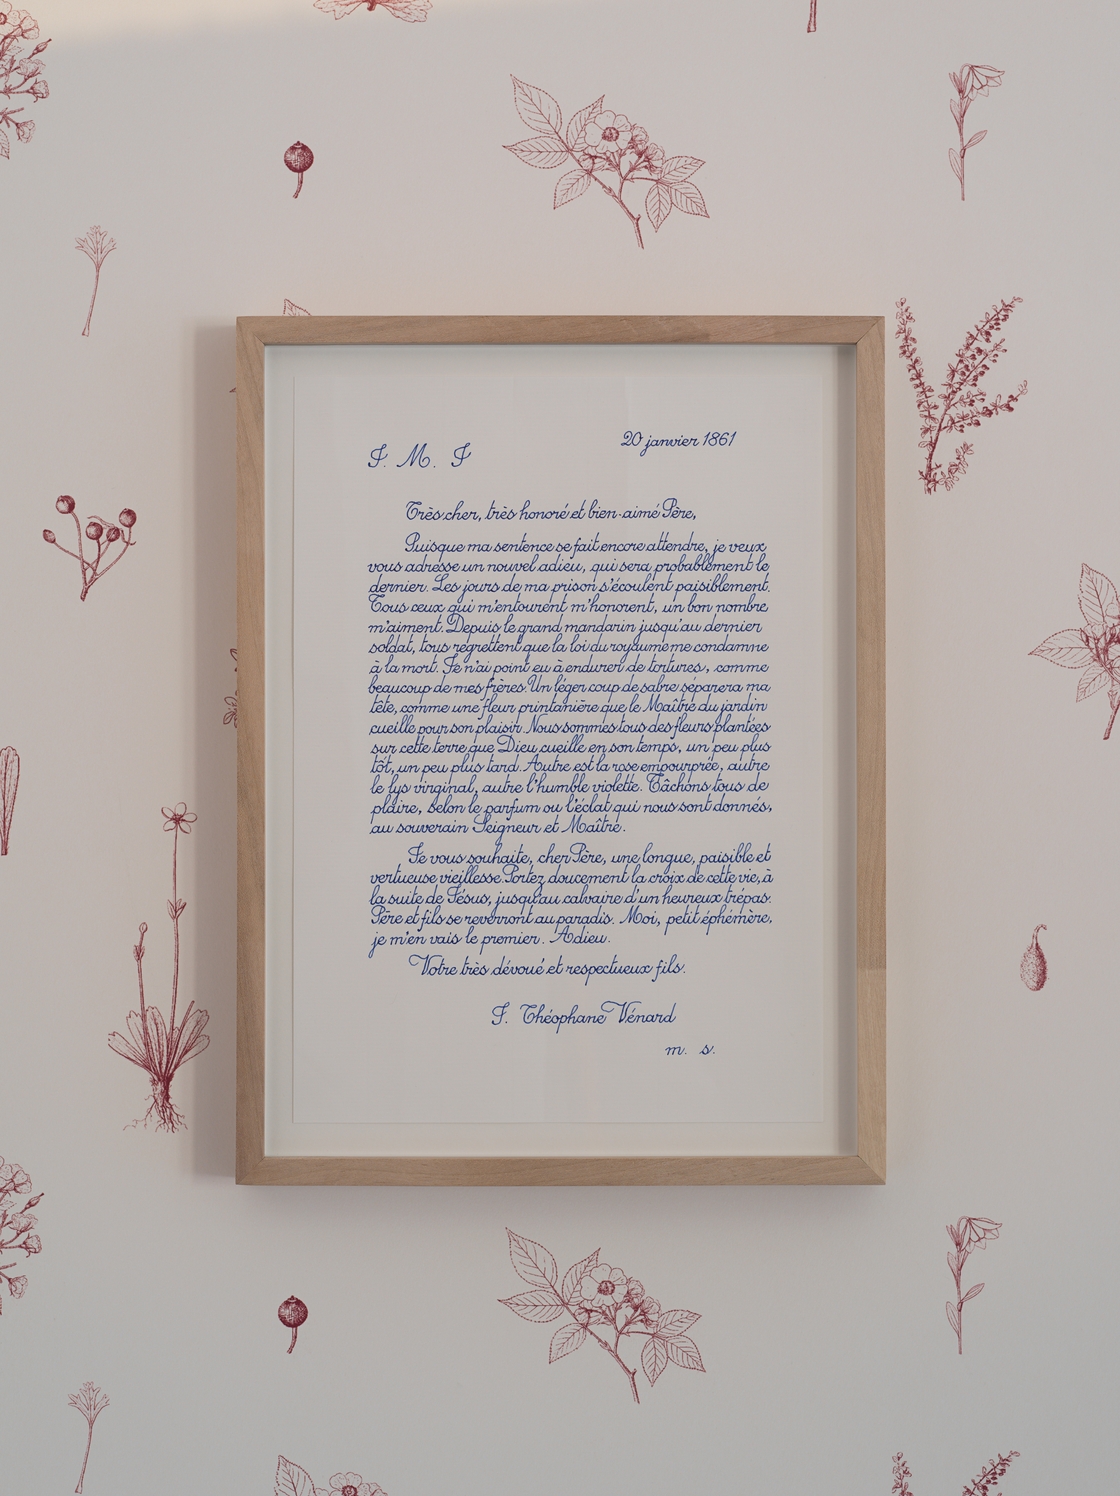 20 janvier 1861
J. M. J
Très cher, très honoré et bien-aimé Père,
Puisque ma sentence se fait encore attendre, je veux
vous adresse un nouvel adieu, qui sera probablement le
dernier. Les jours de ma prison s'écoulent paisiblement.
Tous ceux qui m'entourent m'honorent, un bon nombre
m'aiment. Depuis le grand mandarin jusqu'au dernier
soldat, tous regrettent que la loi du royaume me condamne
à la mort. Je n'ai point eu à endurer de tortures, comme
beaucoup de mes frères. Un léger coup de sabre séparera ma
tête, comme une fleur printanière que le Maître du jardin
cueille pour son plaisir. Nous sommes tous des fleurs plantées
sur cette terre que Dieu cueille en son temps, un peu plus
tôt, un peu plus tard. Autre est la rose empourprée, autre
le lys virginal, autre l'humble violette. Tâchons tous de
plaire, selon le parfum ou l'éclat qui nous sont donnés,
au souverain Seigneur et Maître.
Je vous souhaite, cher Père, une longue, paisible et
vertueuse vieillesse. Portez doucement la croix de cette vie, à
la suite de Jésus, jusqu'au calvaire d'un heureux trépas.
Père et fils se reverront au paradis. Moi, petit éphémère,
je m'en vais le premier. Adieu.
Votre très dévoué et respectueux fils.
J. Théophane Vénard
m. s.